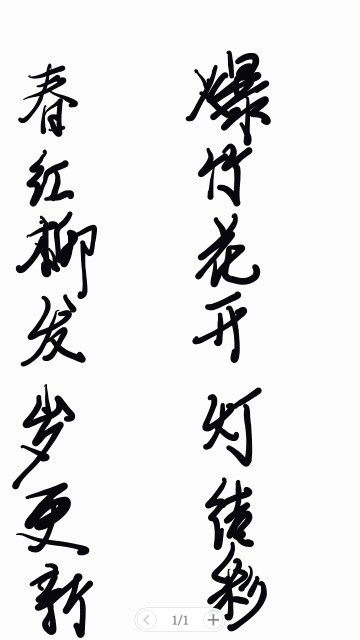 爆竹花开灯结彩
春红柳发岁更新
1/1